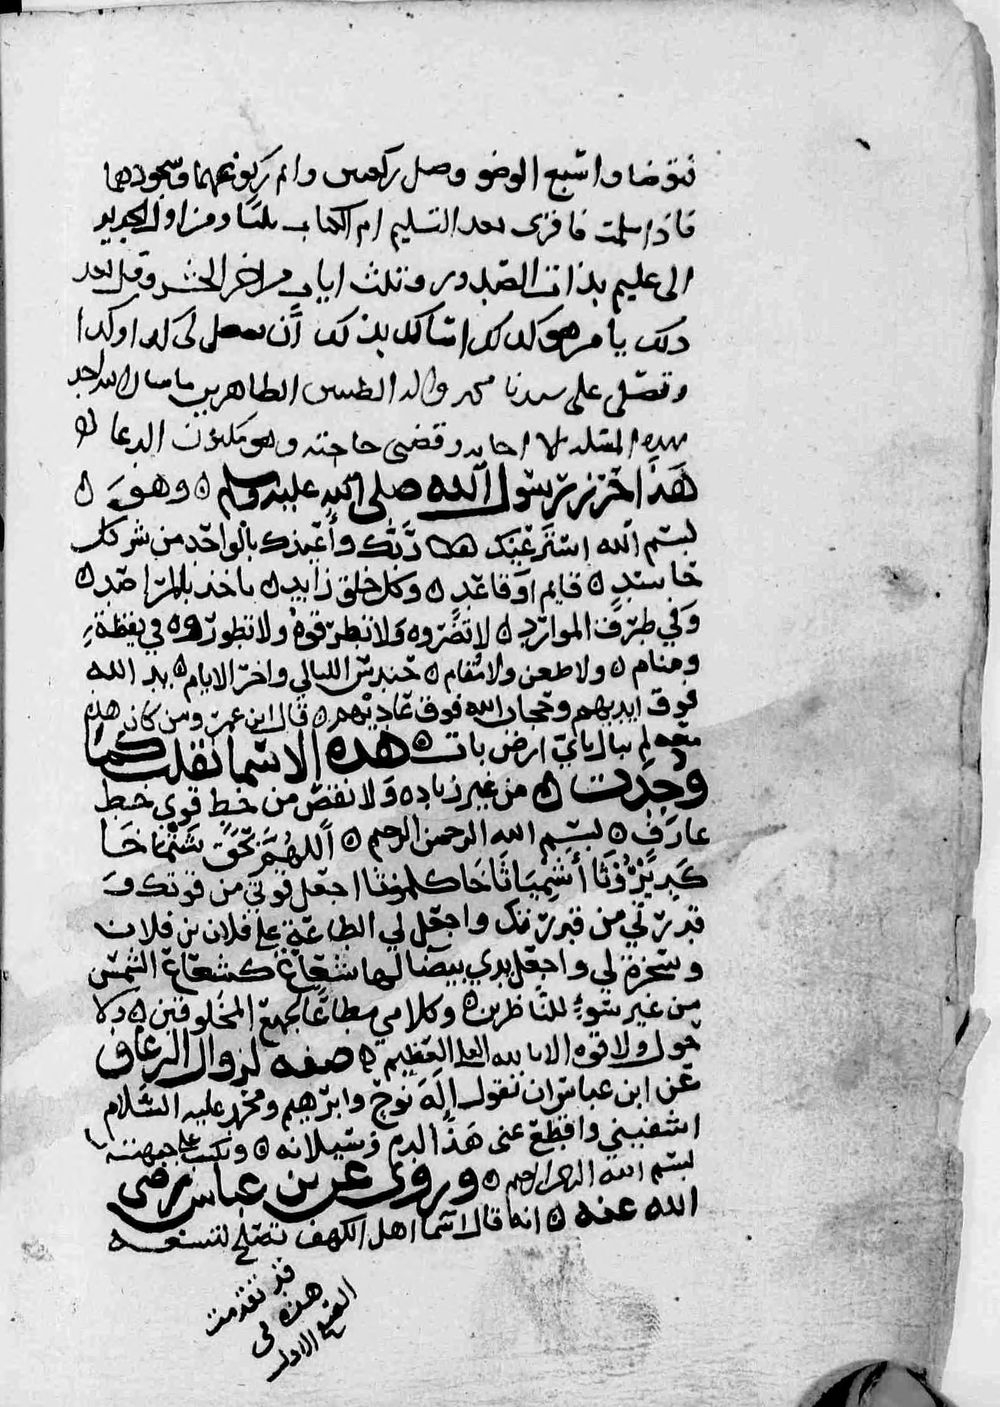 فتوضا واسبغ الوضو وصل ركعتين واتم ركوعهما وسجودهما
فاذا سلمت فاقرى بعد التسليم ام الكتاب ثلثا ومن اول الحديد
الى عليم بذات الصدور وثلث ايات من اخر الحشر وقل بعد
ذلك يا من هو كذلك اسالك بذلك ان تفعل لي كذا وكذا
وتصلي على سيدنا محمد واله الطيبين الطاهرين ما سال الله احد
بهذه المسله الا اجابه وقضى حاجته وهو مكنون الدعا
هذا حرز رسول الله صلى الله عليه وسلم ٥ وهو ٥
بسم الله استرعيك ربك وأعيذك بالواحد من شر كل
حاسد ٥ قايم او قاعد ٥ وكل خلق زايد ٥ ياخذ بالمراصد ٥
وفي طرف الموارد ٥ لا تضروه ولا تطرقوه ولا في يقظة
ومنام ٥ ولا طعن ولا مقام ٥ الليالي واخر الايام ٥ يد الله
فوق ايديهم وحجاب الله فوق عاديتهم ٥ قال ابن عمر ومن كان هذه
معه لم يبال باي ارض بات ٥ هذه الاسما نقلت كما
وجدت ٥ من غير زياده ولا نقص من خط قوي خط
عارف ٥ بسم الله الرحمن الرحيم ٥ اللهم بحق
اجعل قوتي من قوتك و
قدرتي من قدرتك واجعل لي الطاعة على فلان بن فلان
وسخره لي واجعل يدي بيضا لها شعاع كشعاع الشمس
من غير سوء للناظرين ٥ وكلامي مطاعا لجميع المخلوقين ٥ ولا
حول ولا قوه الا بالله العلي العظيم ٥ صفه لزوال الرعاف
عن ابن عباس ان تقول اله نوح وابرهيم ومحمد عليه السلام
اشفيني واقطع عني هذا الدم وسيلانه ٥ وتكتب على جبهته
بسم الله الرحمن الرحيم ٥ وروي عن بن عباس رضي
الله عنه ٥ انه قال اسما اهل الكهف تصلح لتسعه
قد تقدمت
هذه في
الاول